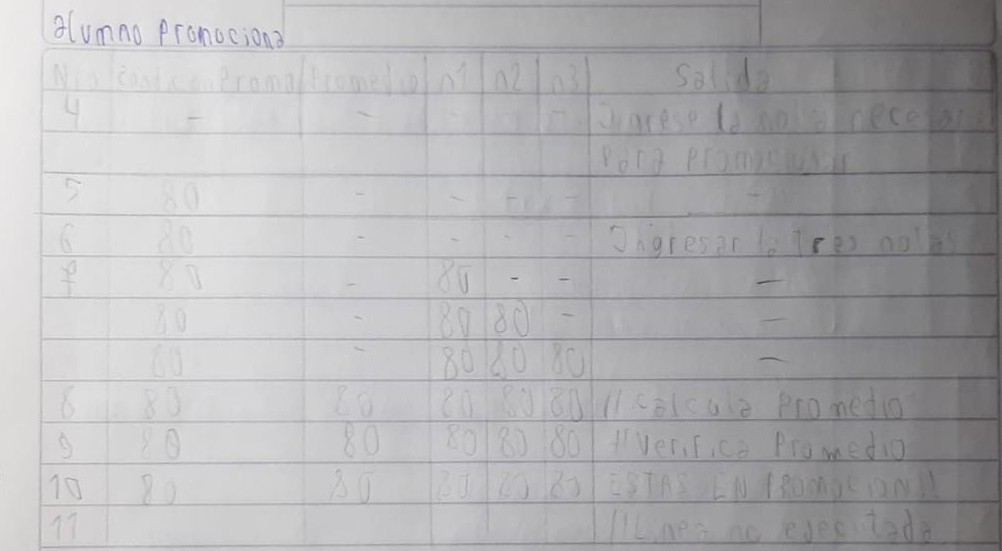 alumno Promociona
Nro Promo Promedio n1 n2 n3 Salida
4 - - - - - Ingrese la nota necesaria
para promocionar
5 80 - - - - -
6 80 - - - - Ingresar la Tres notas
7 80 - 80 - - -
80 - 80 80 - -
80 - 80 80 80 -
8 80 80 80 80 80 // calcula Promedio
9 80 80 80 80 80 // Verifica Promedio
10 80 80 80 80 80 ESTAS EN PROMOCION!!
11 // Linea no ejecutada